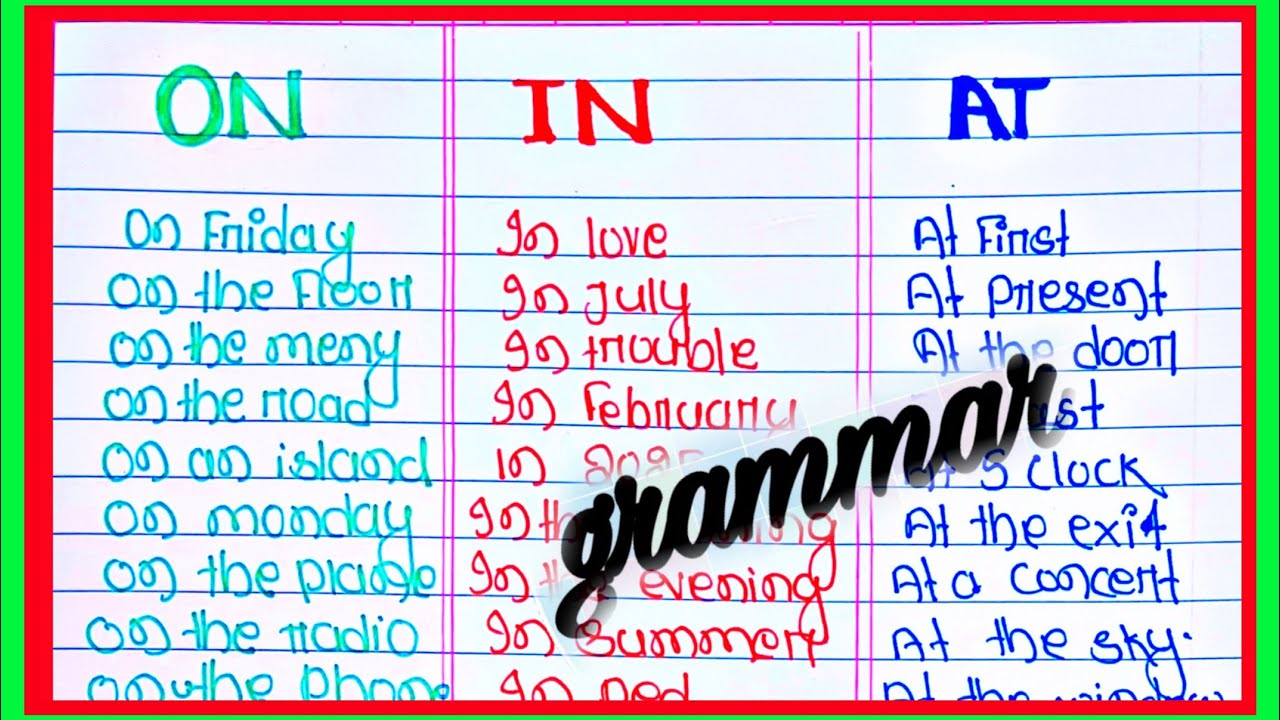 ON
On Friday
On the Floor
On the meny
On the road
On an island
On monday
On the
On the radio
On the phone
IN
In love
In July
In trouble
In February
in
In
In the evening
In summer
In
AT
At First
At present
At the door
At 5 Clock
At the exit
At a concert
At the sky.
At the window
grammar